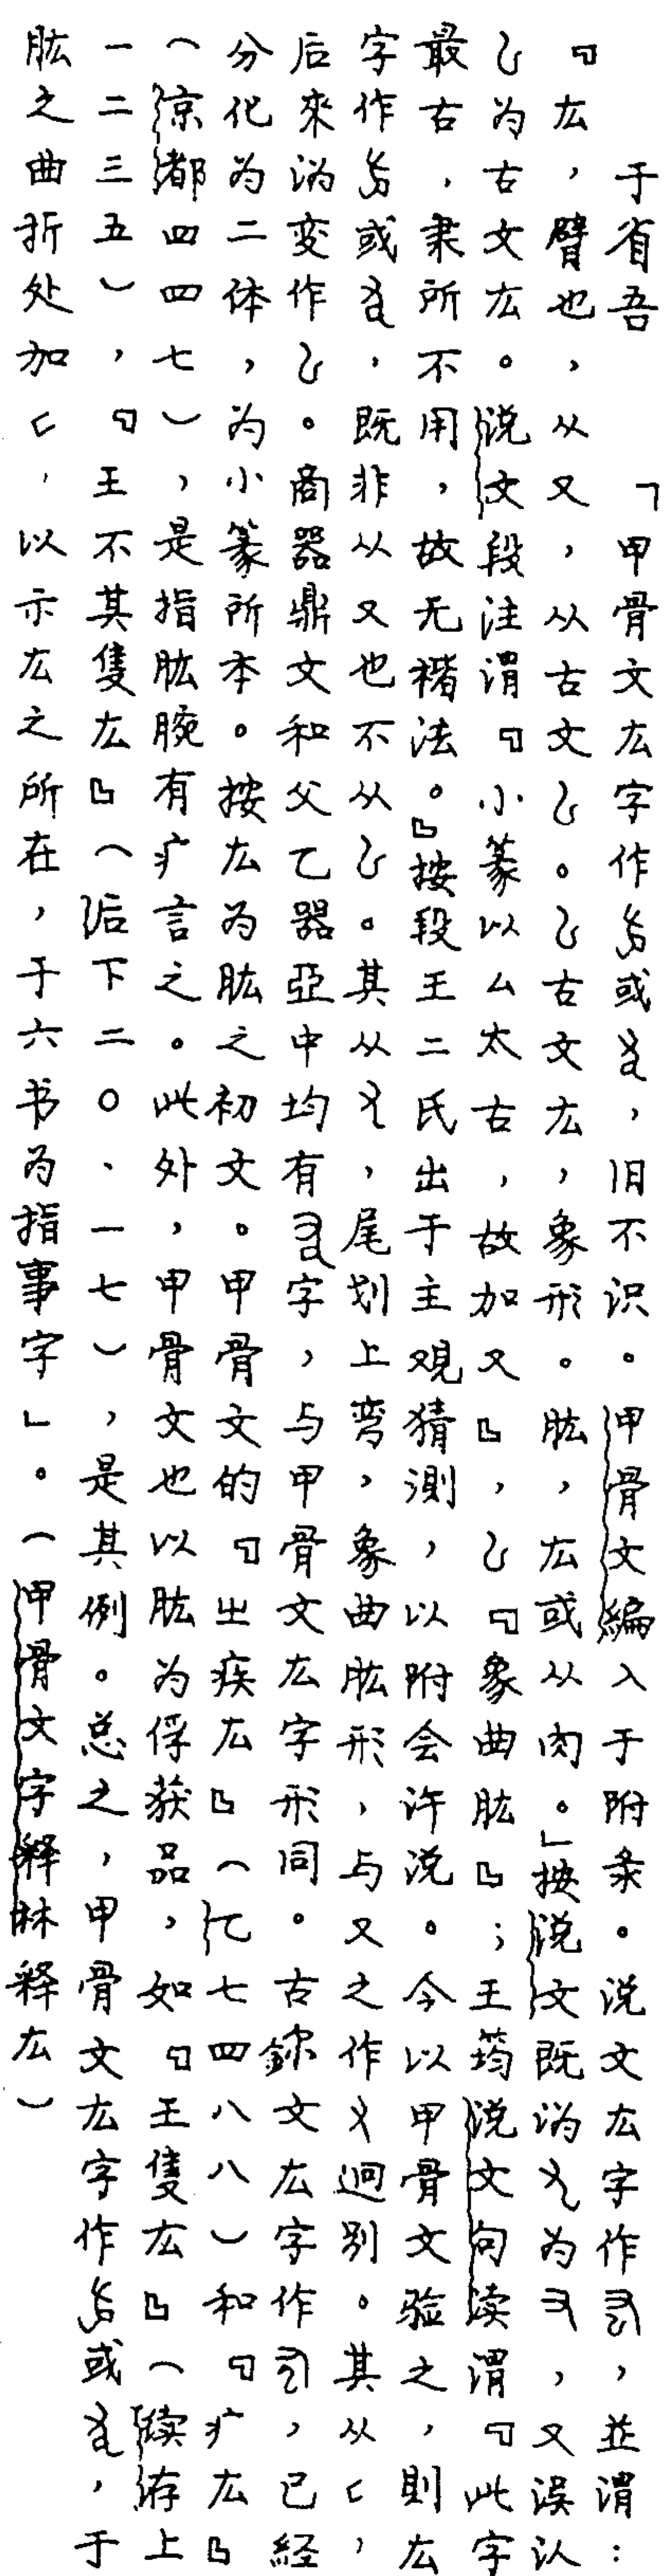 于省吾　「甲骨文厷字作或，旧不识。甲骨文编入于附条。说文厷字作，並谓：
『厷，臂也，从又，从古文。古文厷，象形。肱，厷或从肉。」按说文既讹为，又误认
为古文厷。说文段注谓『小篆以厶太古，故加又』，『象曲肱』；王筠说文句读谓『此字
最古，隶所不用，故无褚法。』按段王二氏出于主观猜测，以附会许说。今以甲骨文验之，则厷
字作或，既非从又也不从。其从，尾划上弯，象曲肱形，与又之作迥别。其从，
后来讹变作。商器鼎文和父乙器亞中均有字，与甲骨文厷字形同。古鉨文厷字作，已経
分化为二体，为小篆所本。按厷为肱之初文。甲骨文的『㞢疾厷』（乙七四八八）和『疒厷』
（京都四四七），是指肱腕有疒言之。此外，甲骨文也以肱为俘获品，如『王隻厷』（续存上
一二三五），『王不其隻厷』（后下二〇、一七），是其例。总之，甲骨文厷字作或，于
肱之曲折处加，以示厷之所在，于六书为指事字」。（甲骨文字释林释厷）